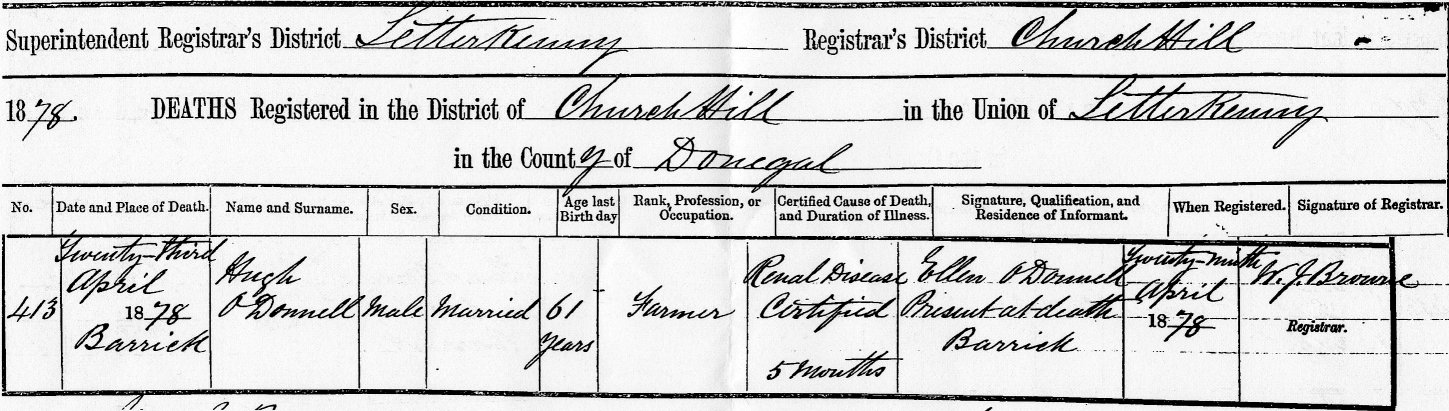 Superintendent Registrar's District Letterkenny Registrar's District Church Hill
1878. DEATHS Registered in the District of Church Hill in the Union of Letterkenny
in the County of Donegal
No. Date and Place of Death. Name and Surname. Sex. Condition. Age last Birth day Rank, Profession, or Occupation. Certified Cause of Death, and Duration of Illness. Signature, Qualification, and Residence of Informant. When Registered. Signature of Registrar.
413
Twenty-third
April
1878
Barrick
Hugh
O'Donnell
Male
Married
61
years
Farmer
Renal Disease
Certified
5 months
Ellen O'Donnell
Present at death
Barrick
Twenty-ninth
April
1878
W. J. Browne
Registrar.